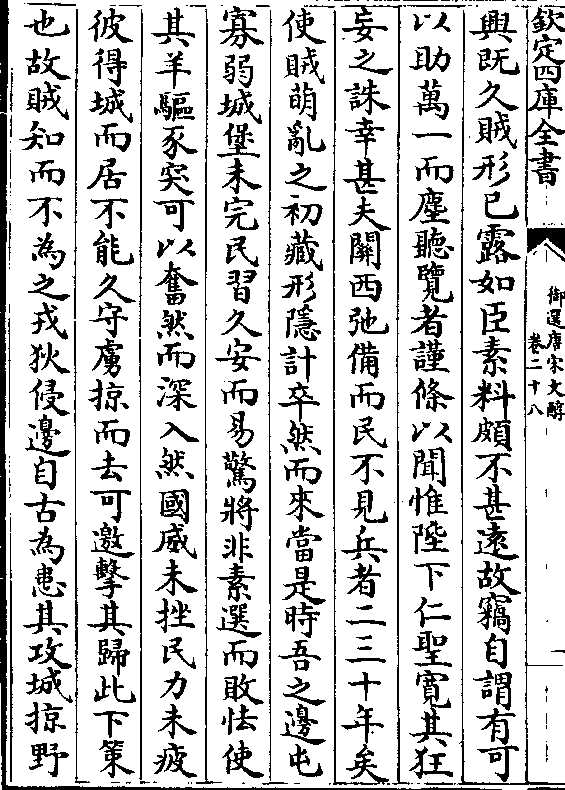 欽定四庫全書
御選唐宋文醇
卷二十八
一
興既久賊形已露如臣素料頗不甚遠故竊自謂有可
以助萬一而塵聽覽者謹條以聞惟陛下仁聖寛其狂
妄之誅幸甚夫闗西弛備而民不見兵者二三十年矣
使賊萌亂之初藏形隱計卒然而來當是時吾之邊屯
寡弱城堡未完民習久安而易驚將非素選而敗怯使
其羊驅豕突可以奮然而深入然國威未挫民力未疲
彼得城而居不能久守虜掠而去可邀擊其歸此下策
也故賊知而不為之戎狄侵邊自古為患其攻城掠野